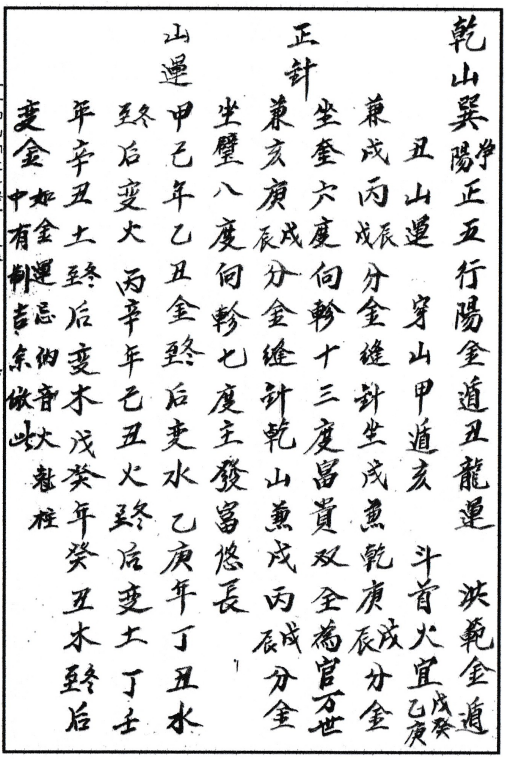 乾山巽 净陽 正五行陽金遁丑龍運 洪範金遁
丑山運 穿山甲遁亥 斗首火宜戊癸乙庚
正針 兼戌丙戌丙辰分金縫針坐戌兼乾庚戌庚辰分金
坐奎六度向軫十三度富貴双全為官万世
兼亥庚戌庚辰分金縫針乾山兼戌丙戌丙辰分金
坐壁八度向軫七度主發富悠長
山運 甲己年乙丑金冬至后变水乙庚年丁丑水
冬至后变火丙辛年己丑火冬至后变土丁壬
年辛丑土冬至后变木戊癸年癸丑木冬至后
变金 如金運忌纳音火
中有制吉余倣此